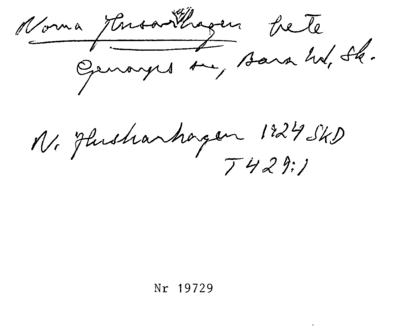 Norra Husarhagen bete
Genarps sn, Bara hd, Sk.
N. Husharhagen 1924 SKD
T429:1
Nr 19729